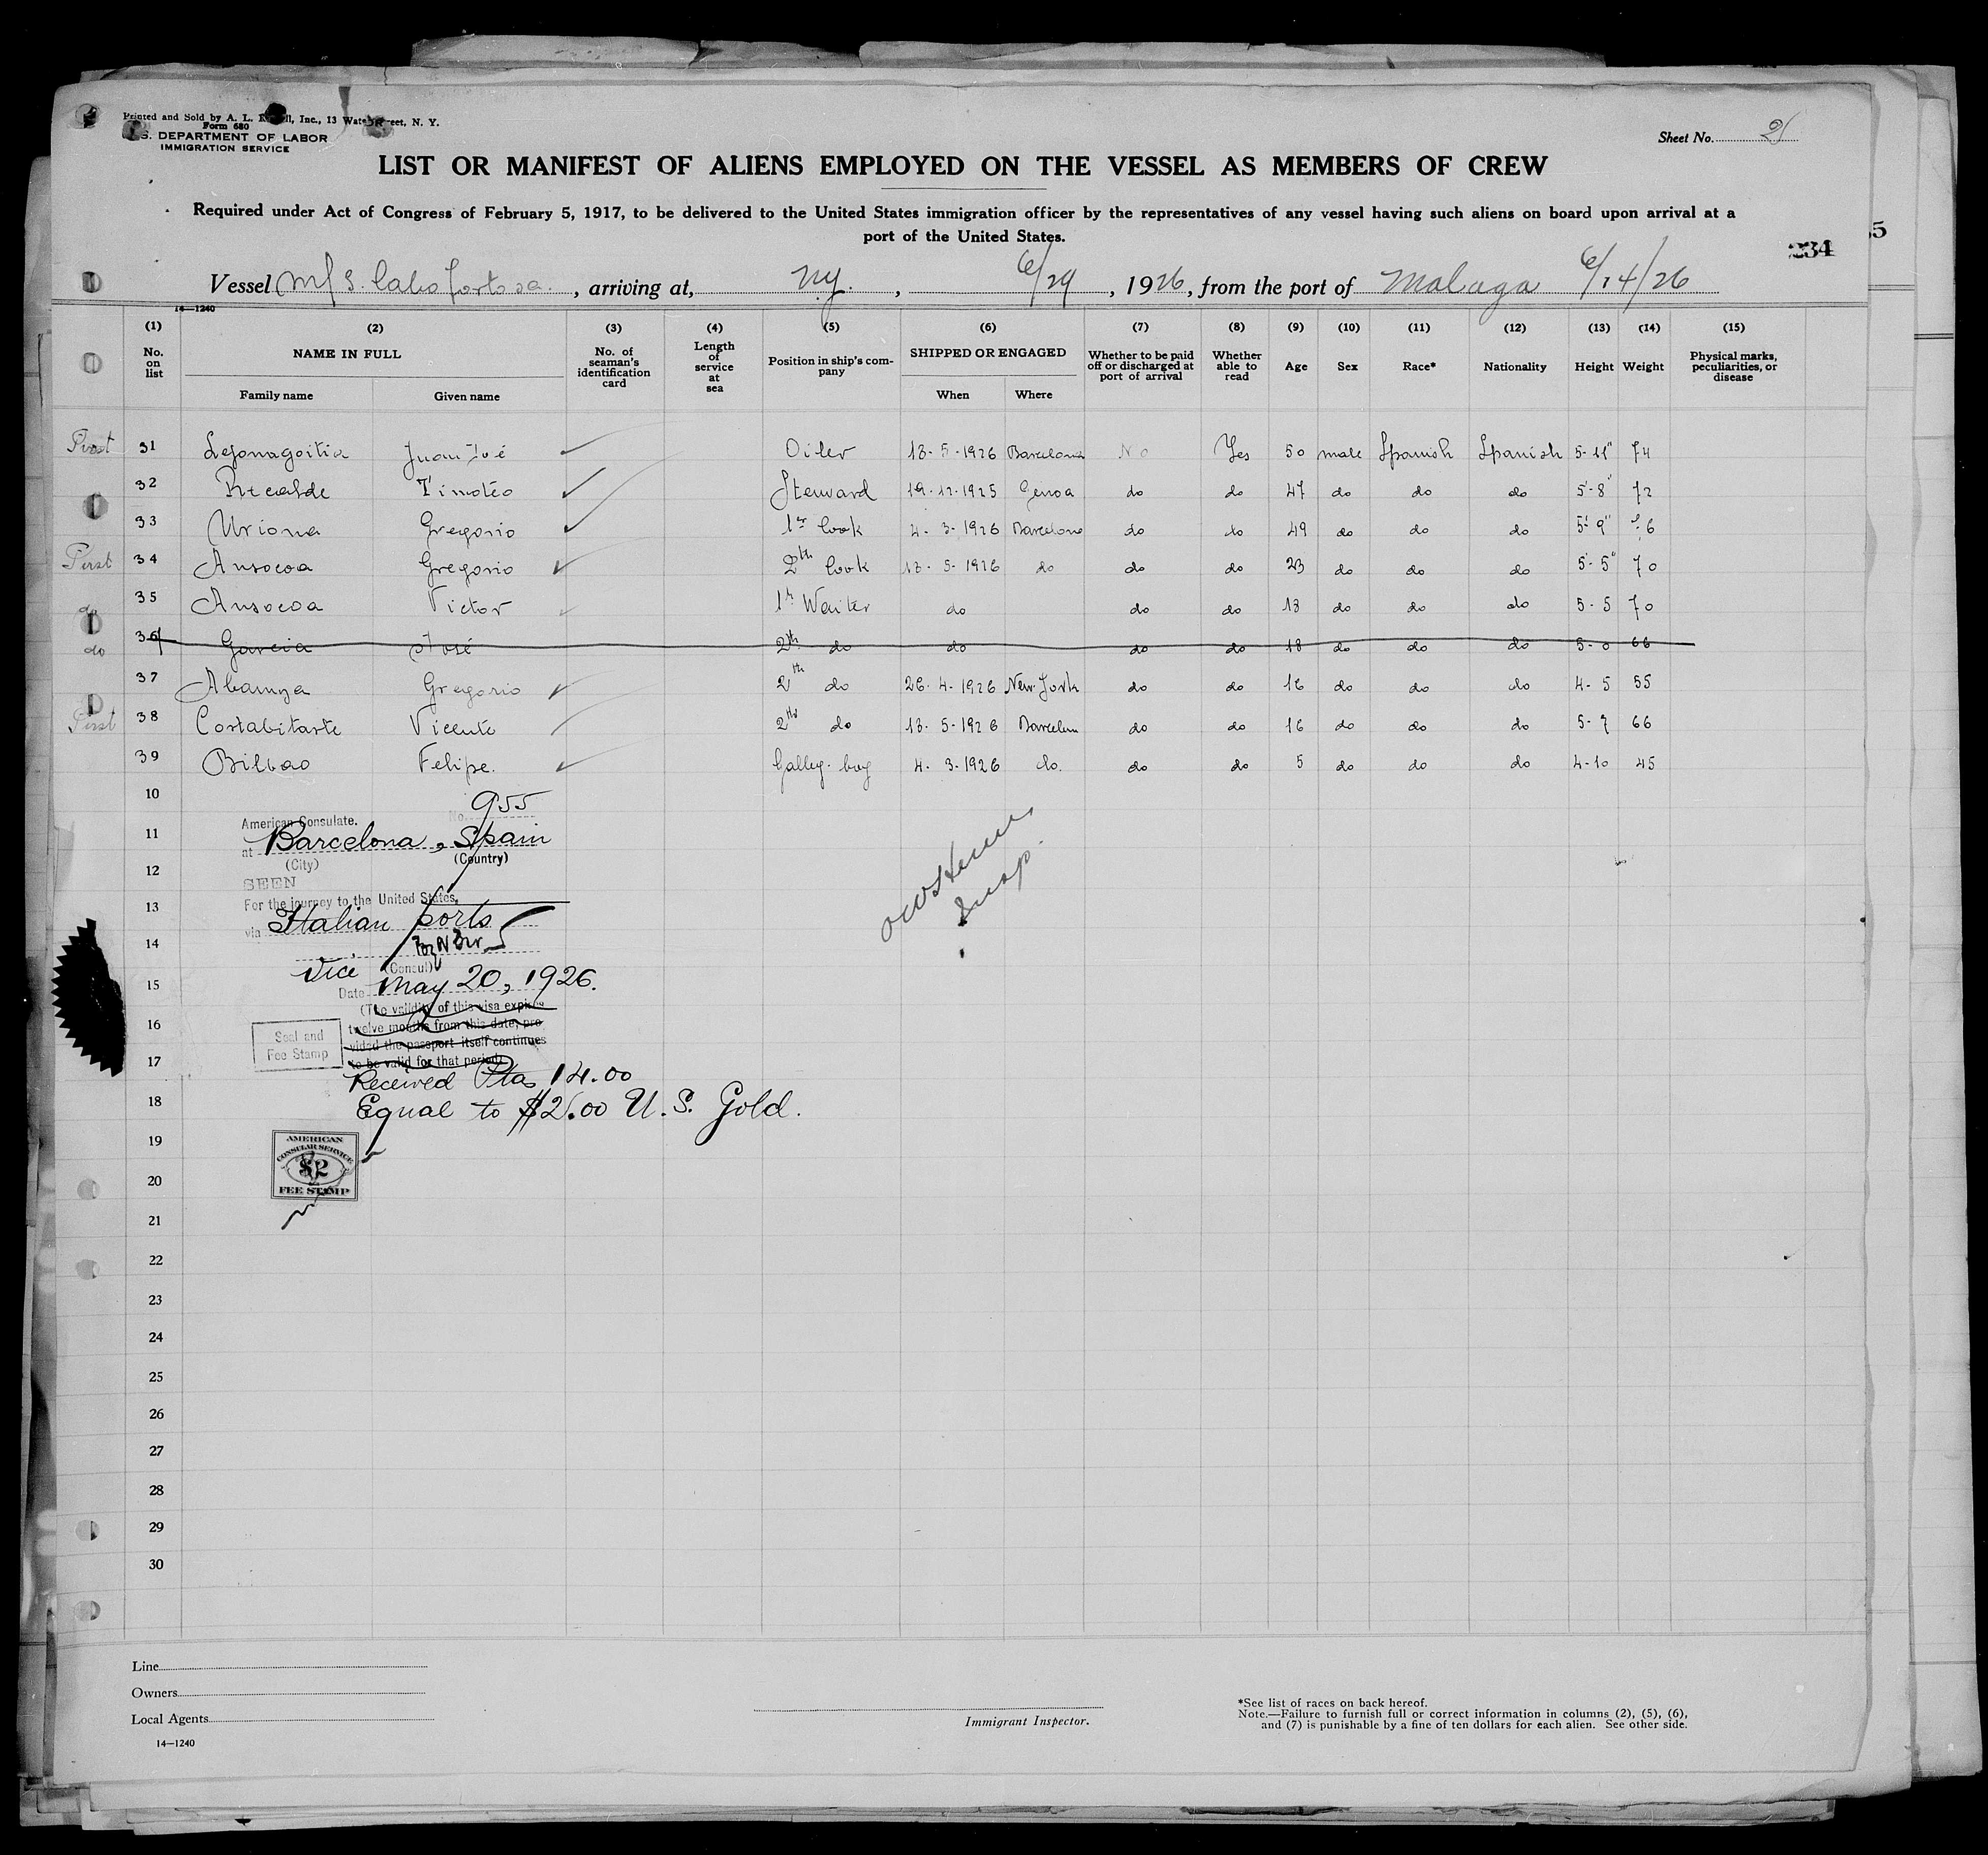 Printed and Sold by A. L. Inc., 13 Water Street, N. Y.
Form 680
U.S. DEPARTMENT OF LABOR
IMMIGRATION SERVICE
Sheet No. 2
LIST OR MANIFEST OF ALIENS EMPLOYED ON THE VESSEL AS MEMBERS OF CREW
Required under Act of Congress of February 5, 1917, to be delivered to the United States immigration officer by the representatives of any vessel having such aliens on board upon arrival at a
port of the United States.
234
5
Vessel M/S. Cabo Tortosa, arriving at, N.Y., 6/29, 1926, from the port of Malaga 6/14/26
14—1240
(1) (2) (3) (4) (5) (6) (7) (8) (9) (10) (11) (12) (13) (14) (15)
No. on list NAME IN FULL Family name Given name No. of seaman's identification card Length of service at sea Position in ship's company SHIPPED OR ENGAGED When Where Whether to be paid off or discharged at port of arrival Whether able to read Age Sex Race* Nationality Height Weight Physical marks, peculiarities, or disease
31 Lejonagoitia Juan José Oiler 13-5-1926 Barcelona No Yes 50 male Spanish Spanish 5-11" 74
32 Recalde Timoteo Steward 19-12-1925 Genoa do do 47 do do do 5-8" 72
33 Uriona Gregorio 1st Cook 4-3-1926 Barcelona do do 49 do do do 5-9" 6
First 34 Ansocoa Gregorio 2th Cook 13-5-1926 do do do 23 do do do 5-5" 70
do 35 Ansocoa Victor 1r Waiter do do do 18 do do do 5-5 70
do 36 Garcia José 2th do do do do 18 do do do 5-0 66
37 Abamza Gregorio 2th do 26-4-1926 New-York do do 16 do do do 4-5 55
First 38 Costabitarte Vicente 2th do 13-5-1926 Barcelona do do 16 do do do 5-7 66
39 Bilbao Felipe. Galley-boy 4-3-1926 do. do do 5 do do do 4-10 45
10
11
12
13
14
15
16
17
18
19
20
21
22
23
24
25
26
27
28
29
30
No. 955
American Consulate.
at Barcelona, Spain
(City) (Country)
SEEN
For the journey to the United States,
via Italian ports
Vice (Consul)
Date May 20, 1926.
(The validity of this visa expires
twelve months from this date, pro-
vided the passport itself continues
to be valid for that period)
Seal and
Fee Stamp
Received Ptas 14.00
Equal to $2.00 U.S. Gold.
AMERICAN
CONSULAR SERVICE
$2
FEE STAMP
Insp.
Line
Owners
Local Agents
14—1240
Immigrant Inspector.
*See list of races on back hereof.
Note.—Failure to furnish full or correct information in columns (2), (5), (6),
and (7) is punishable by a fine of ten dollars for each alien. See other side.